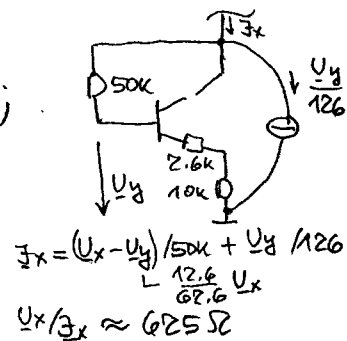 ↓ Jx
;
50K
↓ Uy/126
2.6K
Uy
10K
Jx = (Ux - Uy) / 50K + Uy / 126
12.6/62.6 Ux
Ux/Jx ≈ 625 Ω